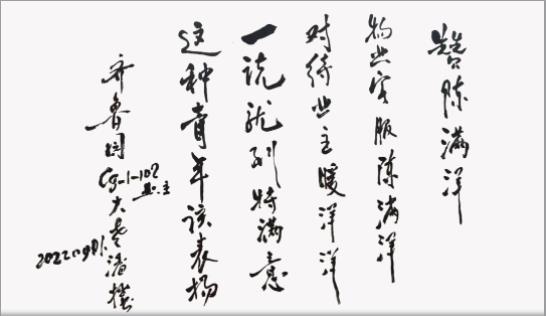 赞陈满洋
物业客服陈满洋
对待业主暖洋洋
一说就到特满意
这种青年该表扬
齐鲁园
C9-1-102
业主
2022.09.01.